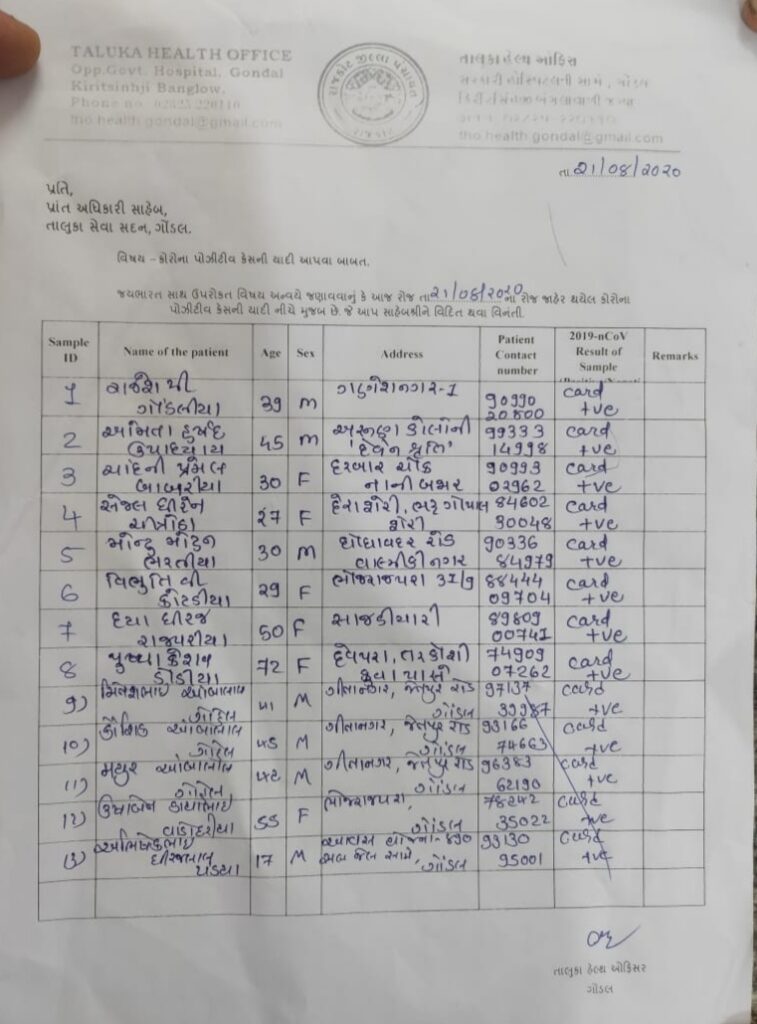 TALUKA HEALTH OFFICE
Opp.Govt. Hospital, Gondal
Kiritsinhji Banglow,
Phone no 02825 220110
tho.health.gondal@gmail.com
રાજકોટ જીલ્લા પંચાયત
તાલુકા હેલ્થ ઓફિસ
સરકારી હોસ્પિટલની સામે, ગોંડલ
tho.health.gondal@gmail.com
તા.૨૧/૦૮/૨૦૨૦
પ્રતિ,
પ્રાંત અધિકારી સાહેબ,
તાલુકા સેવા સદન, ગોંડલ.
વિષય - કોરોના પોઝીટીવ કેસની યાદી આપવા બાબત.
જયભારત સાથ ઉપરોકત વિષય અન્વયે જણાવવાનું કે આજ રોજ તા.૨૧/૦૮/૨૦૨૦ના રોજ જાહેર થયેલ કોરોના
પોઝીટીવ કેસની યાદી નીચે મુજબ છે. જે આપ સાહેબશ્રીને વિદિત થવા વિનંતી.
Sample ID Name of the patient Age Sex Address Patient Contact number 2019-nCoV Result of Sample Remarks
1 ગોંડલીયા 39 M ગણેશનગર-1 90990 20800 card +ve
2 અમિતા હર્ષદ ઉપાધ્યાય 45 M કોલોની 99333 14998 card +ve
3 ચાંદની બાબરીયા 30 F દરબાર ચોક નાની બજાર 90993 02962 card +ve
4 સેજલ 27 F શેરી 84602 30048 card +ve
5 ભરતીયા 30 M ઘોઘાવદર રોડ વાલ્મીકીનગર 90336 84979 card +ve
6 વિભુતિ વી કોટડીયા 29 F ભોજરાજપરા 31/9 88444 09704 card +ve
7 દયા ધીરજ રાજપરીયા 50 F સાજડીયારી 89809 00741 card +ve
8 પુષ્પા કેશવ ડોડીયા 72 F દેવપરા, તરકોશી કુવા પાસે 74909 07262 card +ve
9) ગોહેલ ૫૧ M ગીતાનગર, જેતપુર રોડ ગોંડલ 97137 39987 card +ve
10) કૌશિક અંબાલાલ ગોહેલ ૫૩ M ગીતાનગર, જેતપુર રોડ ગોંડલ 93166 74663 card +ve
11) મયુર અંબાલાલ ગોહેલ ૫૮ M ગીતાનગર, જેતપુર રોડ ગોંડલ 96383 62190 card +ve
12) ઉષાબેન વાડોદરીયા 55 F ભોજરાજપરા, ગોંડલ 78242 35022 card +ve
13) અભિષેકભાઇ ધીરજલાલ પંડયા 17 M આવાસ યોજના સબ જેલ સામે, ગોંડલ 99130 95001 card +ve
તાલુકા હેલ્થ ઓફિસર
ગોંડલ